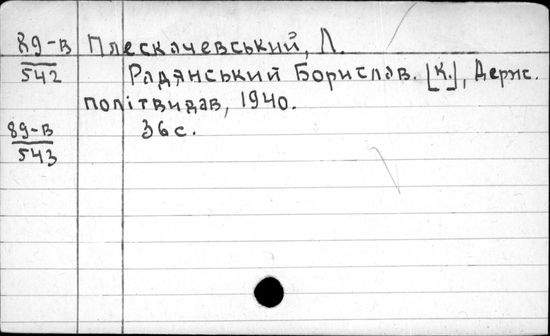 89-в Плескачевський, Л.
542 Радянський Борислав. [К.], Держ.
політвидав, 1940.
89-в 36 с.
543